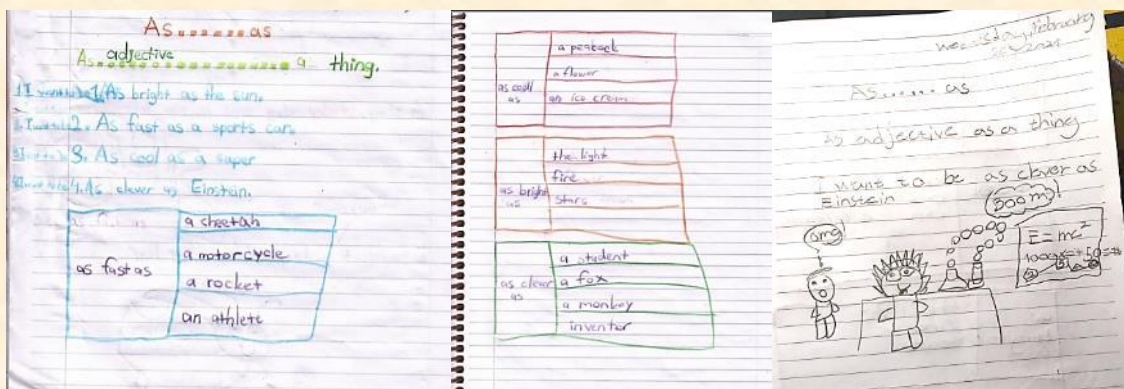 As.......as
As adjective a thing.
1. As bright as the sun.
2. As fast as a sports car.
3. As cool as a super
4. As clever as Einstein.
as fast as
a cheetah
a motorcycle
a rocket
an athlete
as cool as
a peaback
a flower
an ice cream
as bright as
the light
fire
stars
as clever as
a student
a fox
a monkey
inventor
February
2021
As...... as
as adjective as a thing
I want to be as clever as
Einstein
omg
Booom!
E=mc²